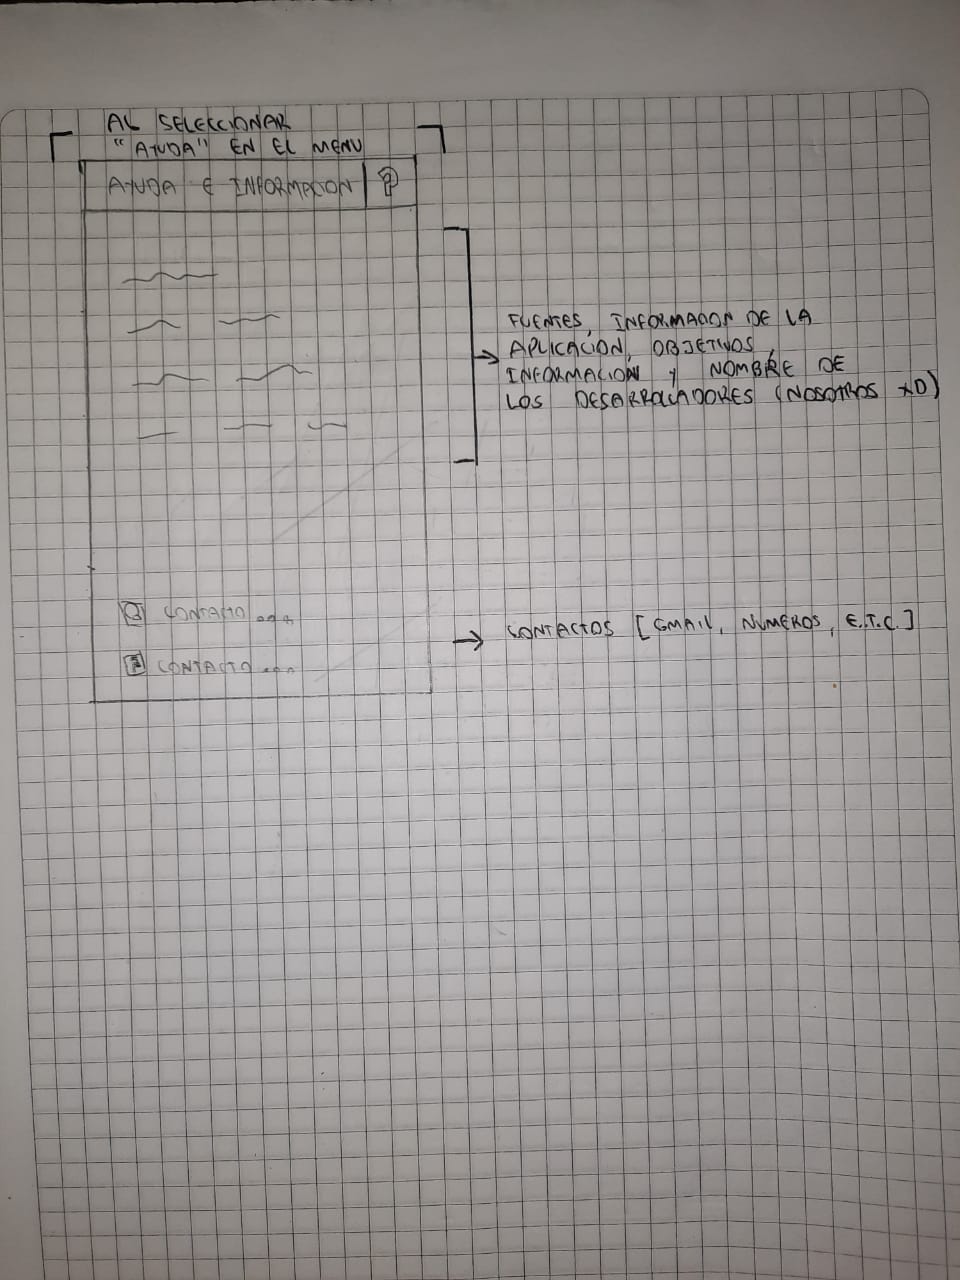 AL SELECCIONAR
"AYUDA" EN EL MENU
AYUDA E INFORMACION ?
FUENTES, INFORMACION DE LA
APLICACIÓN, OBJETIVOS,
INFORMACIÓN Y NOMBRE DE
LOS DESARROLLADORES (NOSOTROS XD)
CONTACTO....
CONTACTOS [GMAIL, NUMEROS, E.T.C.]
CONTACTO....